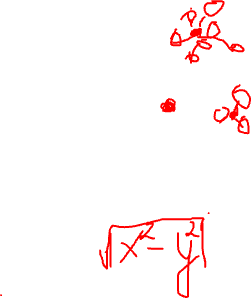 √x² - y²